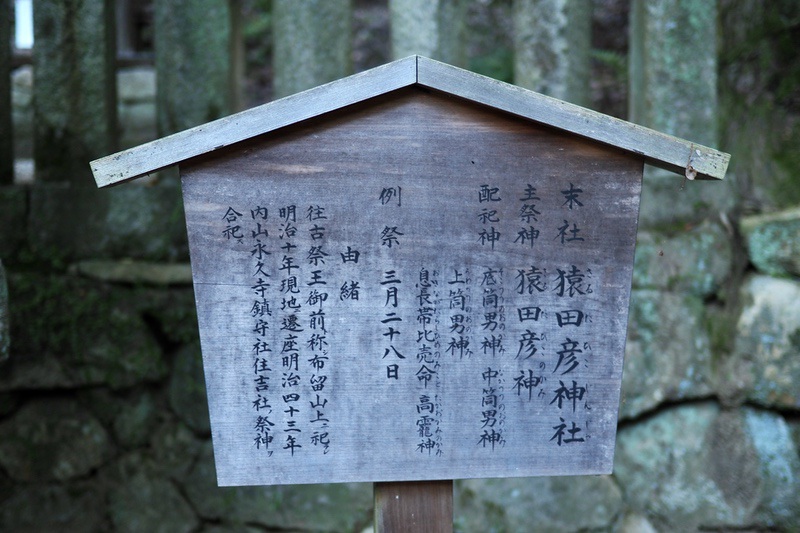 末社 猿田彦神社
主祭神 猿田彦神
配祀神 底筒男神 中筒男神
上筒男神
息長帯比売命 高龗神
例祭 三月二十八日
由緒
往古祭王御前ﾄ称ｼ布留山上ﾆ祀ﾙ
明治十年現地ﾆ遷座明治四十三年
内山永久寺鎮守社住吉社ﾉ祭神ｦ
合祀ｽ